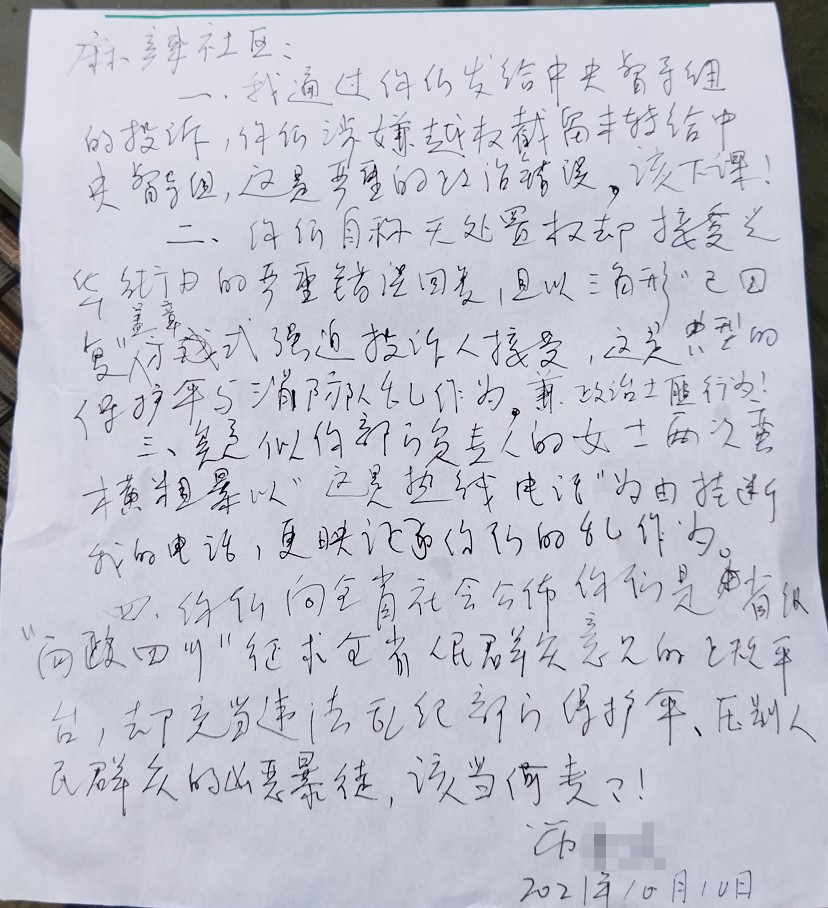 麻辣社区：
一、我通过你们发给中央督导组
的投诉，你们涉嫌越权截留未转给中
央督导组，这是严重的政治错误，该下课！
二、你们自称无处置权却接受
的严重错误回复，且以三角形"已回
盖章
复"方式强迫投诉人接受，这是典型的
保护伞与消防队乱作为，兼政治土匪行为！
三、疑似你部门负责人的女士两次蛮
横粗暴以"这是热线电话"为由挂断
我的电话，更映证了你们的乱作为。
四、你们向全省社会公佈你们是省级
"问政四川"征求全省人民群众意见的上规平
台，却充当违法乱纪部门保护伞、压制人
民群众的凶恶暴徒，该当何责？！
2021年10月10日